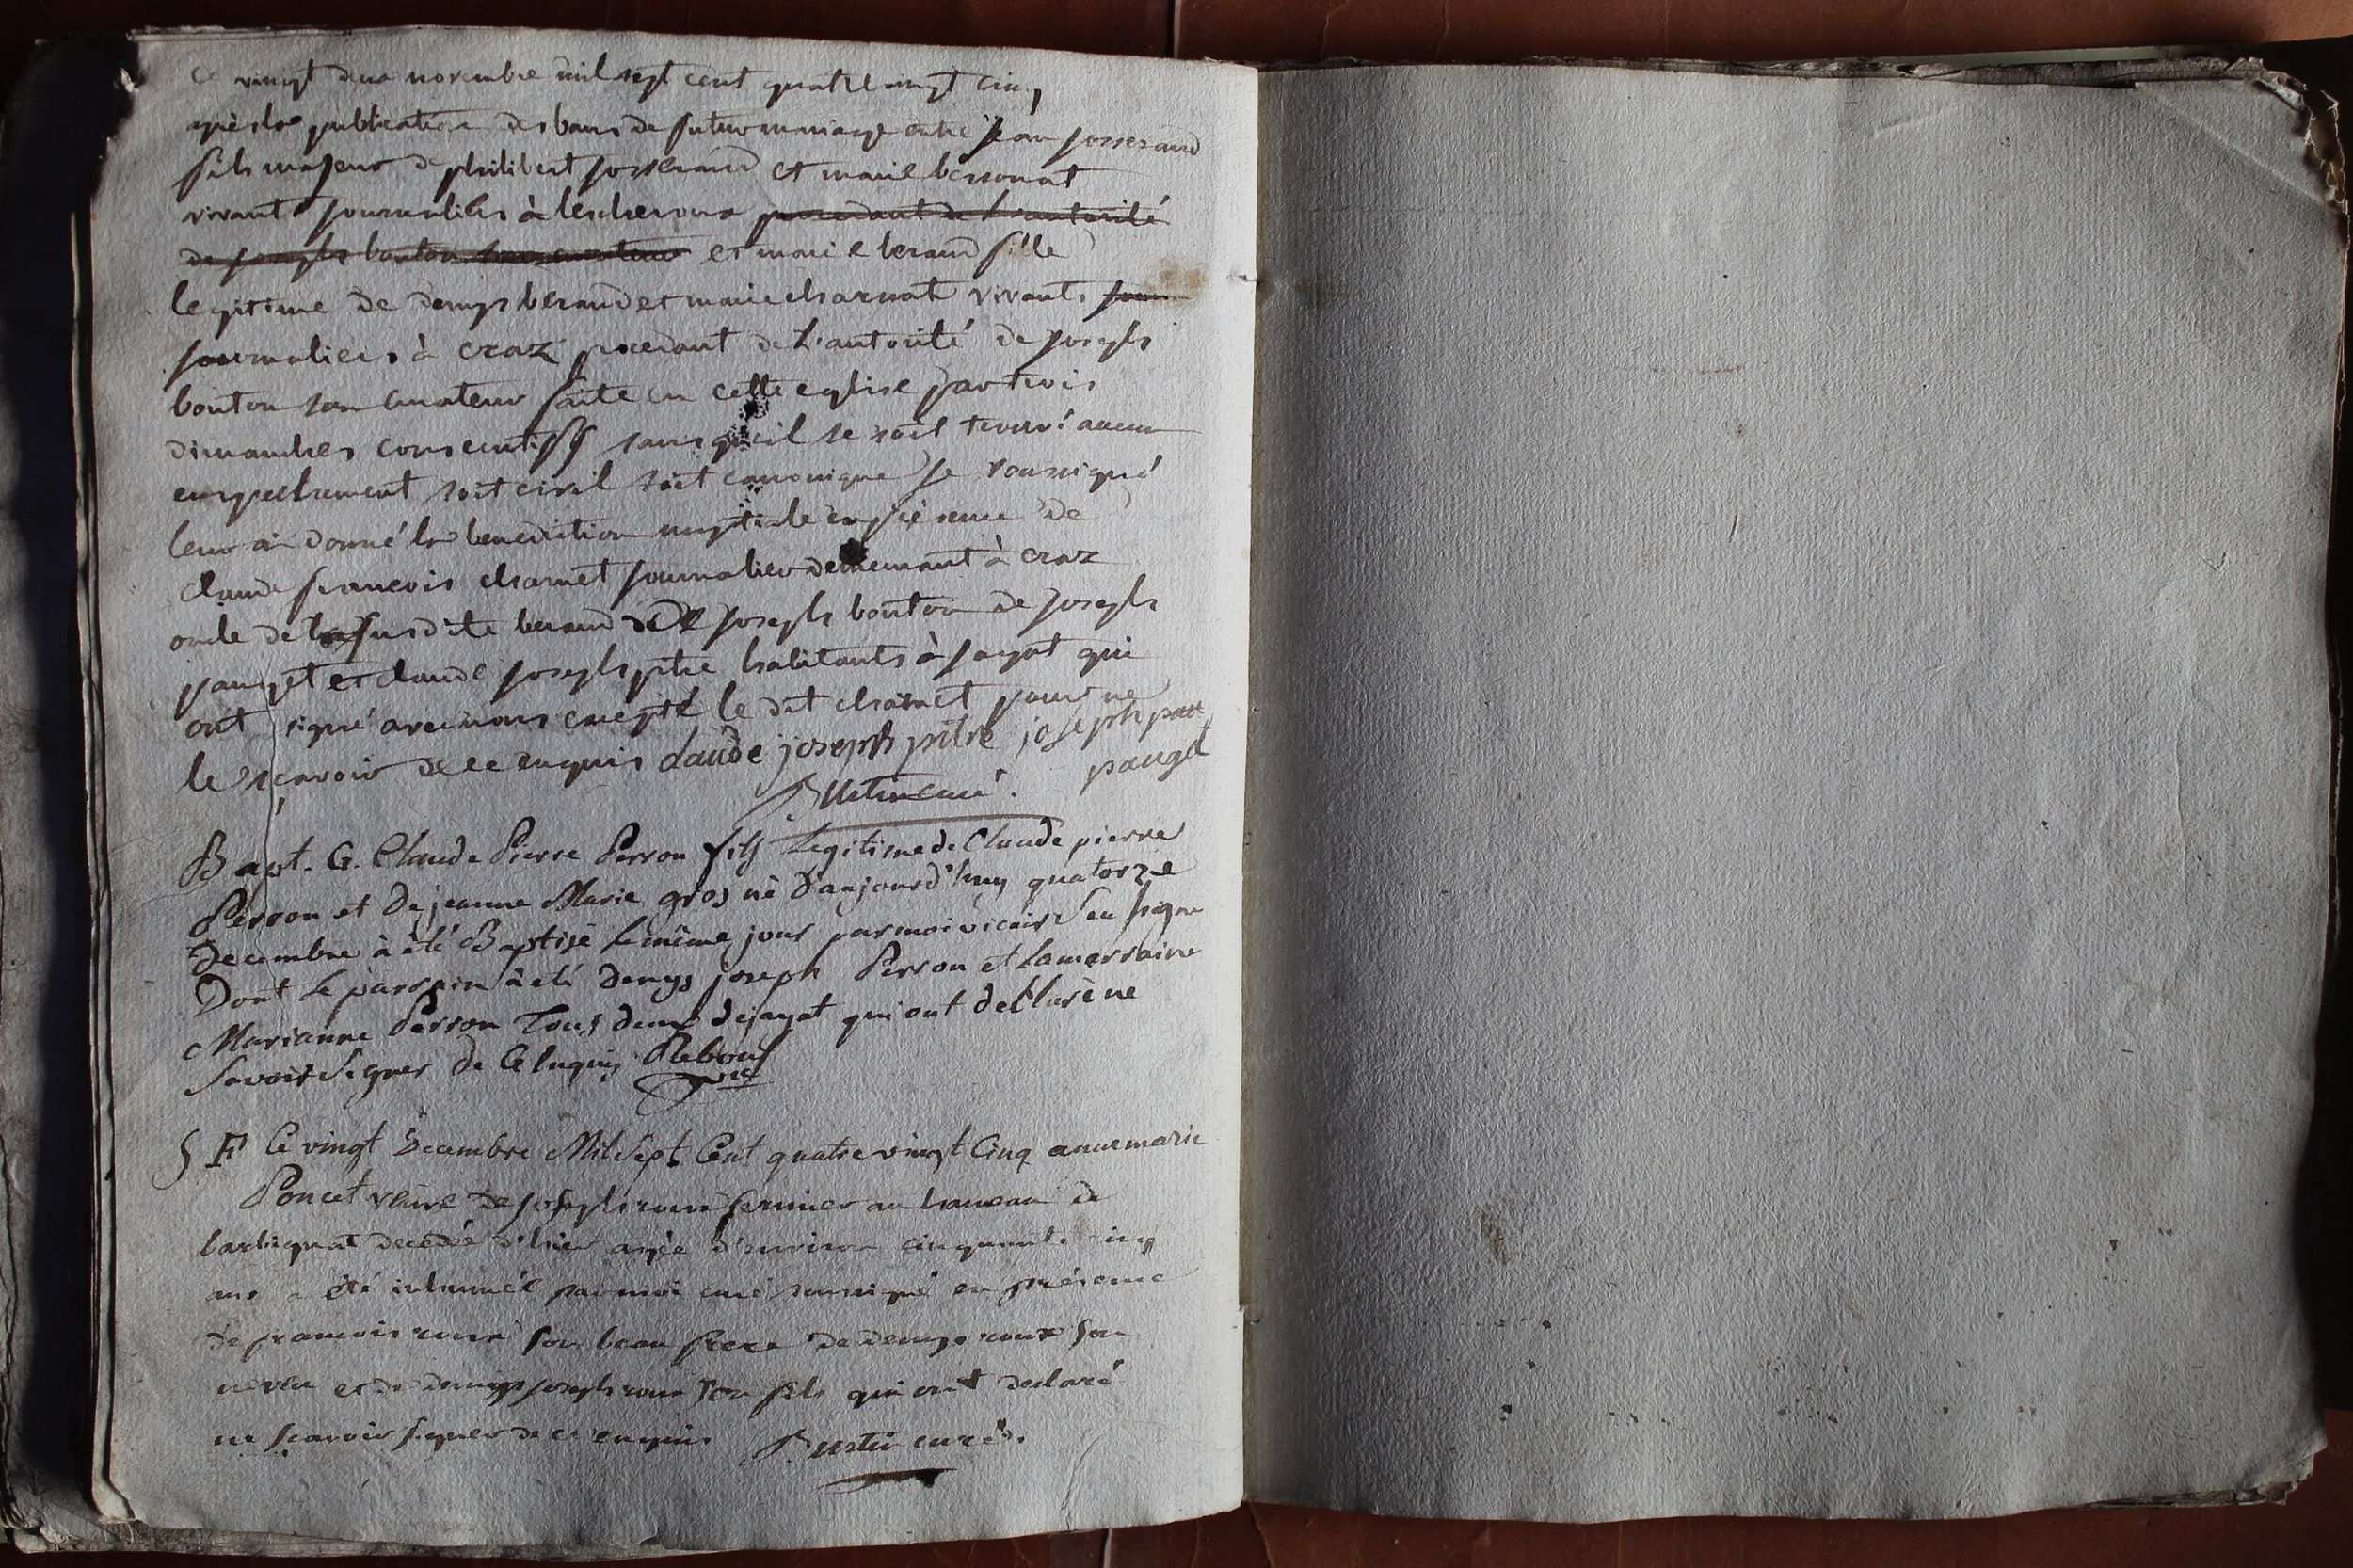 Ce vingt deux novembre mil sept cent quatre vingt cinq
après la publication des bans de futur mariage entre jean josserand
fils majeur de philibert josserand et marie bessonat
vivants journaliers à lescheroux procedant de l'autorité
de joseph bouton son curateur et marie beraud fille
legitime de denys beraud et marie charnat vivants jour
journaliers à craz procedant de L'autorité de joseph
bouton son curateur faite en cette eglise par trois
dimanches consecutiffs sans qu'il se soit trouvé aucun
empechement soit civil soit canonique je soussigné
leur ai donné la benediction nuptiale en présence de
claude francois charnet journalier demeurant à craz
oncle de la susdite beraud de joseph bouton de joseph
pauget et claude joseph pitre habitants à jayat qui
ont signé avec nous excepté le dit charnet pour ne
le sçavoir de ce enquis claude joseph pitre joseph pau
pauget
curé.
Bapt. G. Claude Pierre Perron fils Legitime de Claude pierre
Perron et de jeanne Marie gros né d'aujourd'huy quatorze
Decembre à été Baptisé le même jour par moi vicaire Sou signe
Dont le parrain à été denys joseph Perron et la marraine
Marianne Perron Tous deux de jayat qui ont declarè ne
Savoir Signer de Ce Enquis Rebouf
vic
§ F Ce vingt Decembre Mil Sept Cent quatre vingt Cinq anne marie
Poncet veuve de joseph roux fermier au hameau de
barbignat decedée d'hier agée d'environ cinquante cinq
ans a été inhumée par moi curé soussigné en présence
de francois roux son beau frere de denys roux son
neveu et de denys joseph roux son fils qui ont declaré
ne scavoir signer de ce enquis curé.